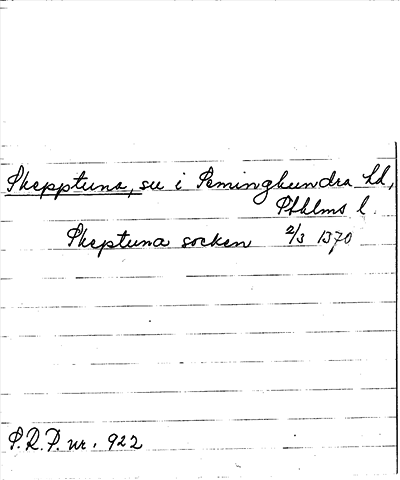 Skepptuna, sn i Seminghundra hd,
Sthlms l.
Skeptuna socken 2/3 1370
S.R.P. nr. 922